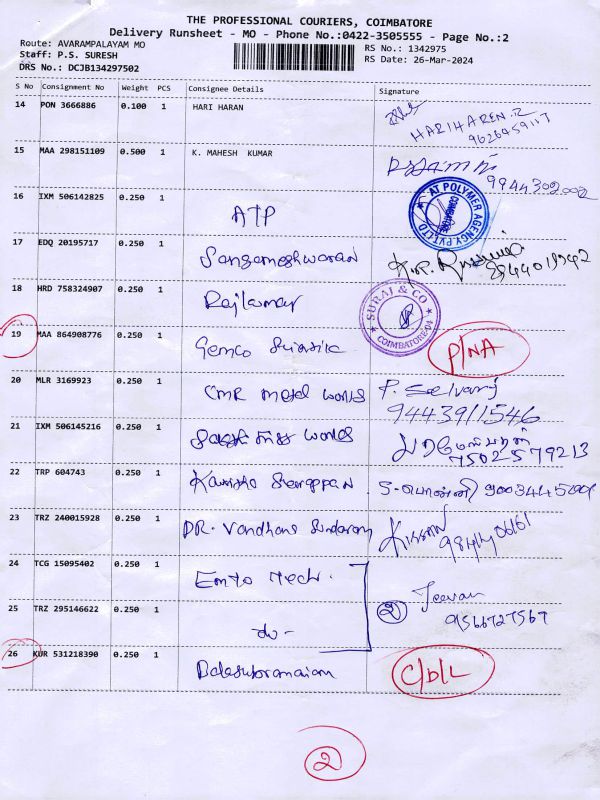 THE PROFESSIONAL COURIERS, COIMBATORE
Delivery Runsheet - MO - Phone No.:0422-3505555 - Page No.:2
Route: AVARAMPALAYAM MO RS No.: 1342975
Staff: P.S. SURESH RS Date: 26-Mar-2024
DRS No.: DCJB134297502
S No Consignment No Weight PCS Consignee Details Signature
14 PON 3666886 0.100 1 HARI HARAN
HARIHAREN.R
9626959117
15 MAA 298151109 0.500 1 K. MAHESH KUMAR
9944302002
16 IXM 506142825 0.250 1 ATP
AT POLYMER AGENCY PVT.LTD COIMBATORE
17 EDQ 20195717 0.250 1 Sangameshwaran
18 HRD 758324907 0.250 1 Rajkumar
SURAJ & CO COIMBATORE-04
19 MAA 864908776 0.250 1 Gemco P/NA
20 MLR 3169923 0.250 1 CMR Metal works P. Selvaraj
9443911546
21 IXM 506145216 0.250 1 works
7502579213
22 TRP 604743 0.250 1 S.பொன்னி
23 TRZ 240015928 0.250 1 DR. Vandhana Sundaram
24 TCG 15095402 0.250 1 Emto Tech.
2 Jeevan
9566727567
25 TRZ 295146622 0.250 1 do -
26 KUR 531218390 0.250 1 Balasubramaniam C/D/L
2